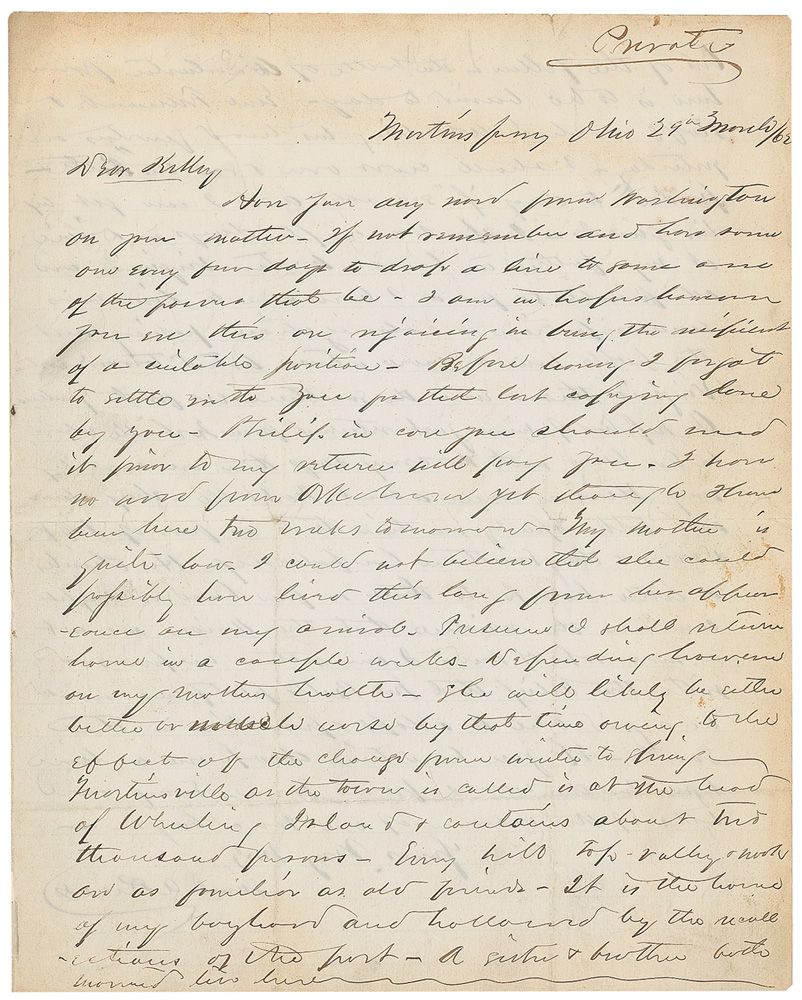 Private
Martins ferry Ohio 29th March/62
Dear Kelley
Have you any word from Washington
on your matter - If not remember and have some
one every few days to drop a line to some one
of the powers that be - I am in hopes however
you ere this are rejoicing in being the recipient
of a suitable position - Before leaving I forgot
to settle with you for that last copying done
by you - Philip. in case you should need
it prior to my return will pay you. I have
no word from yet though I have
been here two weeks tomorrow - My mother is
quite low. I could not believe that she could
possibly have lived this long from her appear
-ance on my arrival. Presume I shall return
home in a couple weeks - Depending however
on my mothers health - She will likely be either
better or much worse by that time owing to the
effect of the change from winter to spring
Martinsville as the town is called is at the head
of Wheeling Island & contains about two
thousand persons - Every hill top - valley & nook
are as familiar as old friends - It is the home
of my boyhood and hallowed by the recoll
-ections of the past - A sister & brother both
married live here